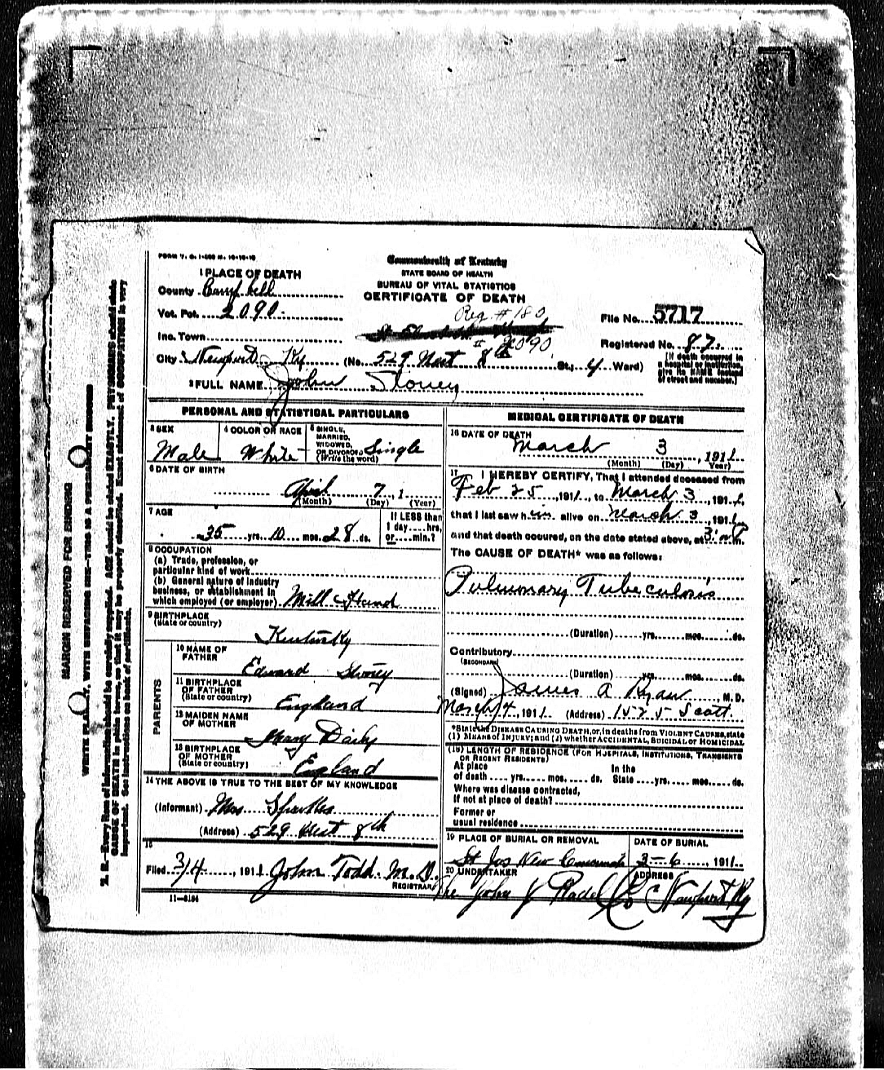 FORM V. S. 1-
Commonwealth of Kentucky
STATE BOARD OF HEALTH
BUREAU OF VITAL STATISTICS
CERTIFICATE OF DEATH
1 PLACE OF DEATH
County Campbell
Vot. Pct. 2090.
Inc. Town
City Newport, Ky (No. 529 West 8th St., 4 Ward)
Reg #180
# 2090
File No. 5717
Registered No. 87.
[If death occurred in a hospital or institution, give its NAME instead of street and number.]
2 FULL NAME John Stoney
PERSONAL AND STATISTICAL PARTICULARS
3 SEX Male
4 COLOR OR RACE White
5 SINGLE, MARRIED, WIDOWED, OR DIVORCED (Write the word) Single
6 DATE OF BIRTH
April 7, 1
(Month) (Day) (Year)
7 AGE
35 yrs. 10 mos. 28 ds.
If LESS than 1 day....hrs, or....min.?
8 OCCUPATION
(a) Trade, profession, or
particular kind of work
(b) General nature of industry
business, or establishment in
which employed (or employer) Mill Hand
9 BIRTHPLACE
(State or country)
Kentucky
PARENTS
10 NAME OF FATHER
Edward Stoney
11 BIRTHPLACE OF FATHER
(State or country) England
12 MAIDEN NAME OF MOTHER
Mary
13 BIRTHPLACE OF MOTHER
(State or country) England
14 THE ABOVE IS TRUE TO THE BEST OF MY KNOWLEDGE
(Informant) Mrs Sparks
(Address) 529 West 8th
15
Filed 3/4, 1911 John Todd M.D.
REGISTRAR
11-5184
MEDICAL CERTIFICATE OF DEATH
16 DATE OF DEATH
March 3, 1911
(Month) (Day) Year)
17 I HEREBY CERTIFY, That I attended deceased from
Feb 25, 1911, to March 3, 1911,
that I last saw him alive on March 3, 1911,
and that death occured, on the date stated above, at 3 m.
The CAUSE OF DEATH* was as follows:
Pulmonary Tubeculosis
(Duration) yrs. mos. ds.
Contributory
(SECONDARY)
(Duration) yrs. mos. ds.
(Signed) James A Ryan M. D.
March 4, 1911 (Address) 1525 Scott.
*State the DISEASE CAUSING DEATH, or, in deaths from VIOLENT CAUSES, state
(1) MEANS OF INJURY; and (2) whether ACCIDENTAL, SUICIDAL or HOMICIDAL
(18) LENGTH OF RESIDENCE (FOR HOSPITALS, INSTITUTIONS, TRANSIENTS
OR RECENT RESIDENTS)
At place of death yrs. mos. ds. In the State yrs. mos. ds.
Where was disease contracted,
If not at place of death?
Former or
usual residence
19 PLACE OF BURIAL OR REMOVAL
St Jos New
DATE OF BURIAL
3-6, 1911.
20 UNDERTAKER
The John J Radel Co
ADDRESS
Newport Ky
MARGIN RESERVED FOR BINDING